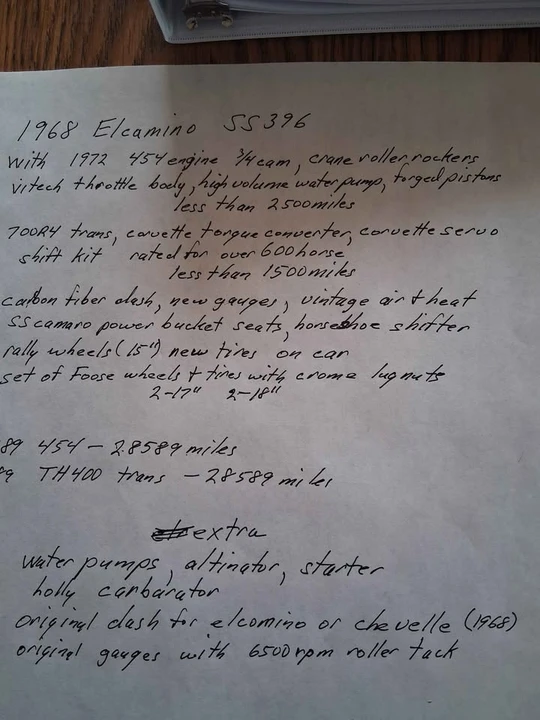 1968 Elcamino SS396
with 1972 454 engine 3/4 cam, crane roller rockers
vitech throttle body, high volume water pump, forged pistons
less than 2500 miles
700R4 trans, corvette torque converter, corvette servo
shift kit rated for over 600 horse
less than 1500 miles
carbon fiber dash, new gauges, vintage air & heat
SS camaro power bucket seats, horseshoe shifter
rally wheels (15") new tires on car
set of Foose wheels & tires with crome lug nuts
2-17" 2-18"
89 454 - 28589 miles
TH400 trans - 28589 miles
extra
water pumps, altinator, starter
holly carbarator
original dash for elcomino or chevelle (1968)
original gauges with 6500 rpm roller tack